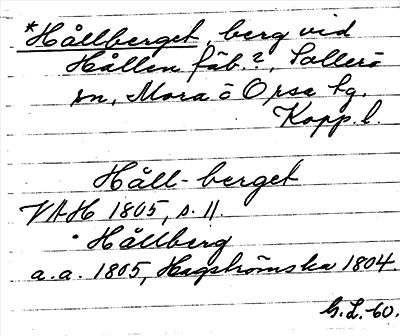 *Hållberget, berg vid
Hållen fäb.?, Sollerö
sn, Mora o Orsa tg.
Kopp.l.
Håll-berget
VAH 1805, s. 11.
Hållberg
a.a. 1805, Hagströmska 1804.
G.L.-60.